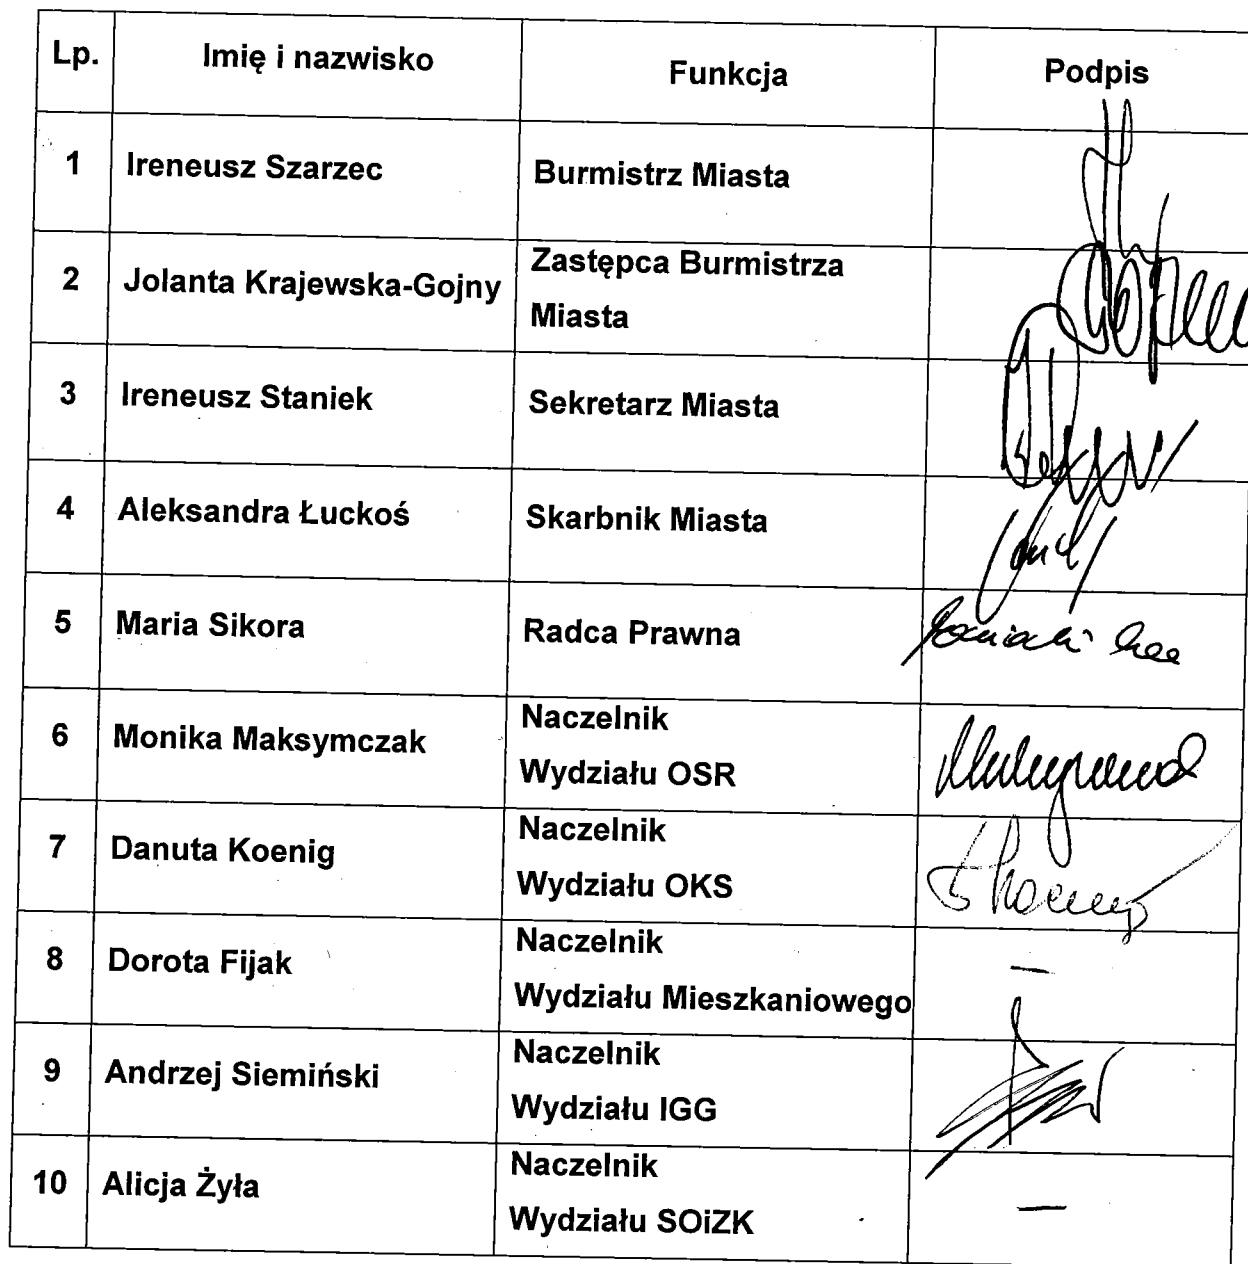 Lp. Imię i nazwisko Funkcja Podpis
1 Ireneusz Szarzec Burmistrz Miasta
2 Jolanta Krajewska-Gojny Zastępca Burmistrza
Miasta
3 Ireneusz Staniek Sekretarz Miasta
4 Aleksandra Łuckoś Skarbnik Miasta
5 Maria Sikora Radca Prawna
6 Monika Maksymczak Naczelnik
Wydziału OSR
7 Danuta Koenig Naczelnik
Wydziału OKS
8 Dorota Fijak Naczelnik
Wydziału Mieszkaniowego
—
9 Andrzej Siemiński Naczelnik
Wydziału IGG
10 Alicja Żyła Naczelnik
Wydziału SOiZK
—